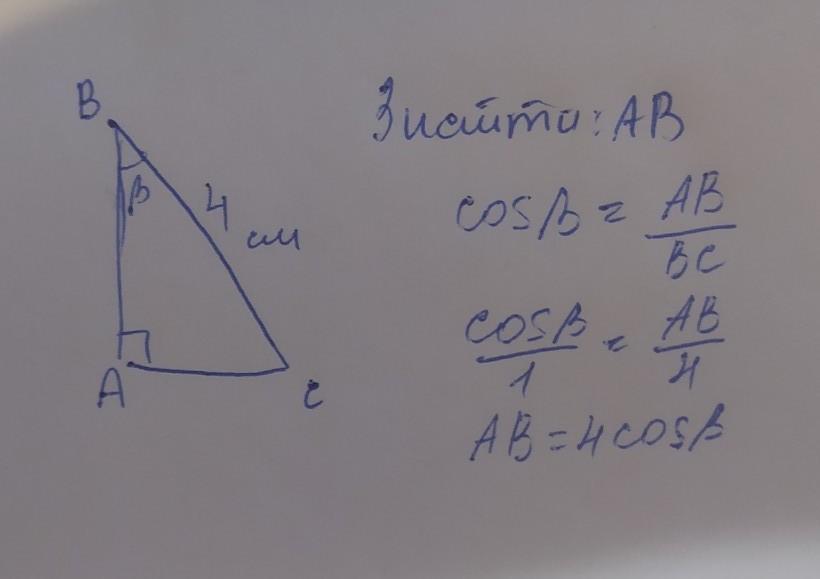 B
β
4 см
A
C
Знайти: AB
cosβ = AB/BC
cosβ/1 = AB/4
AB = 4cosβ